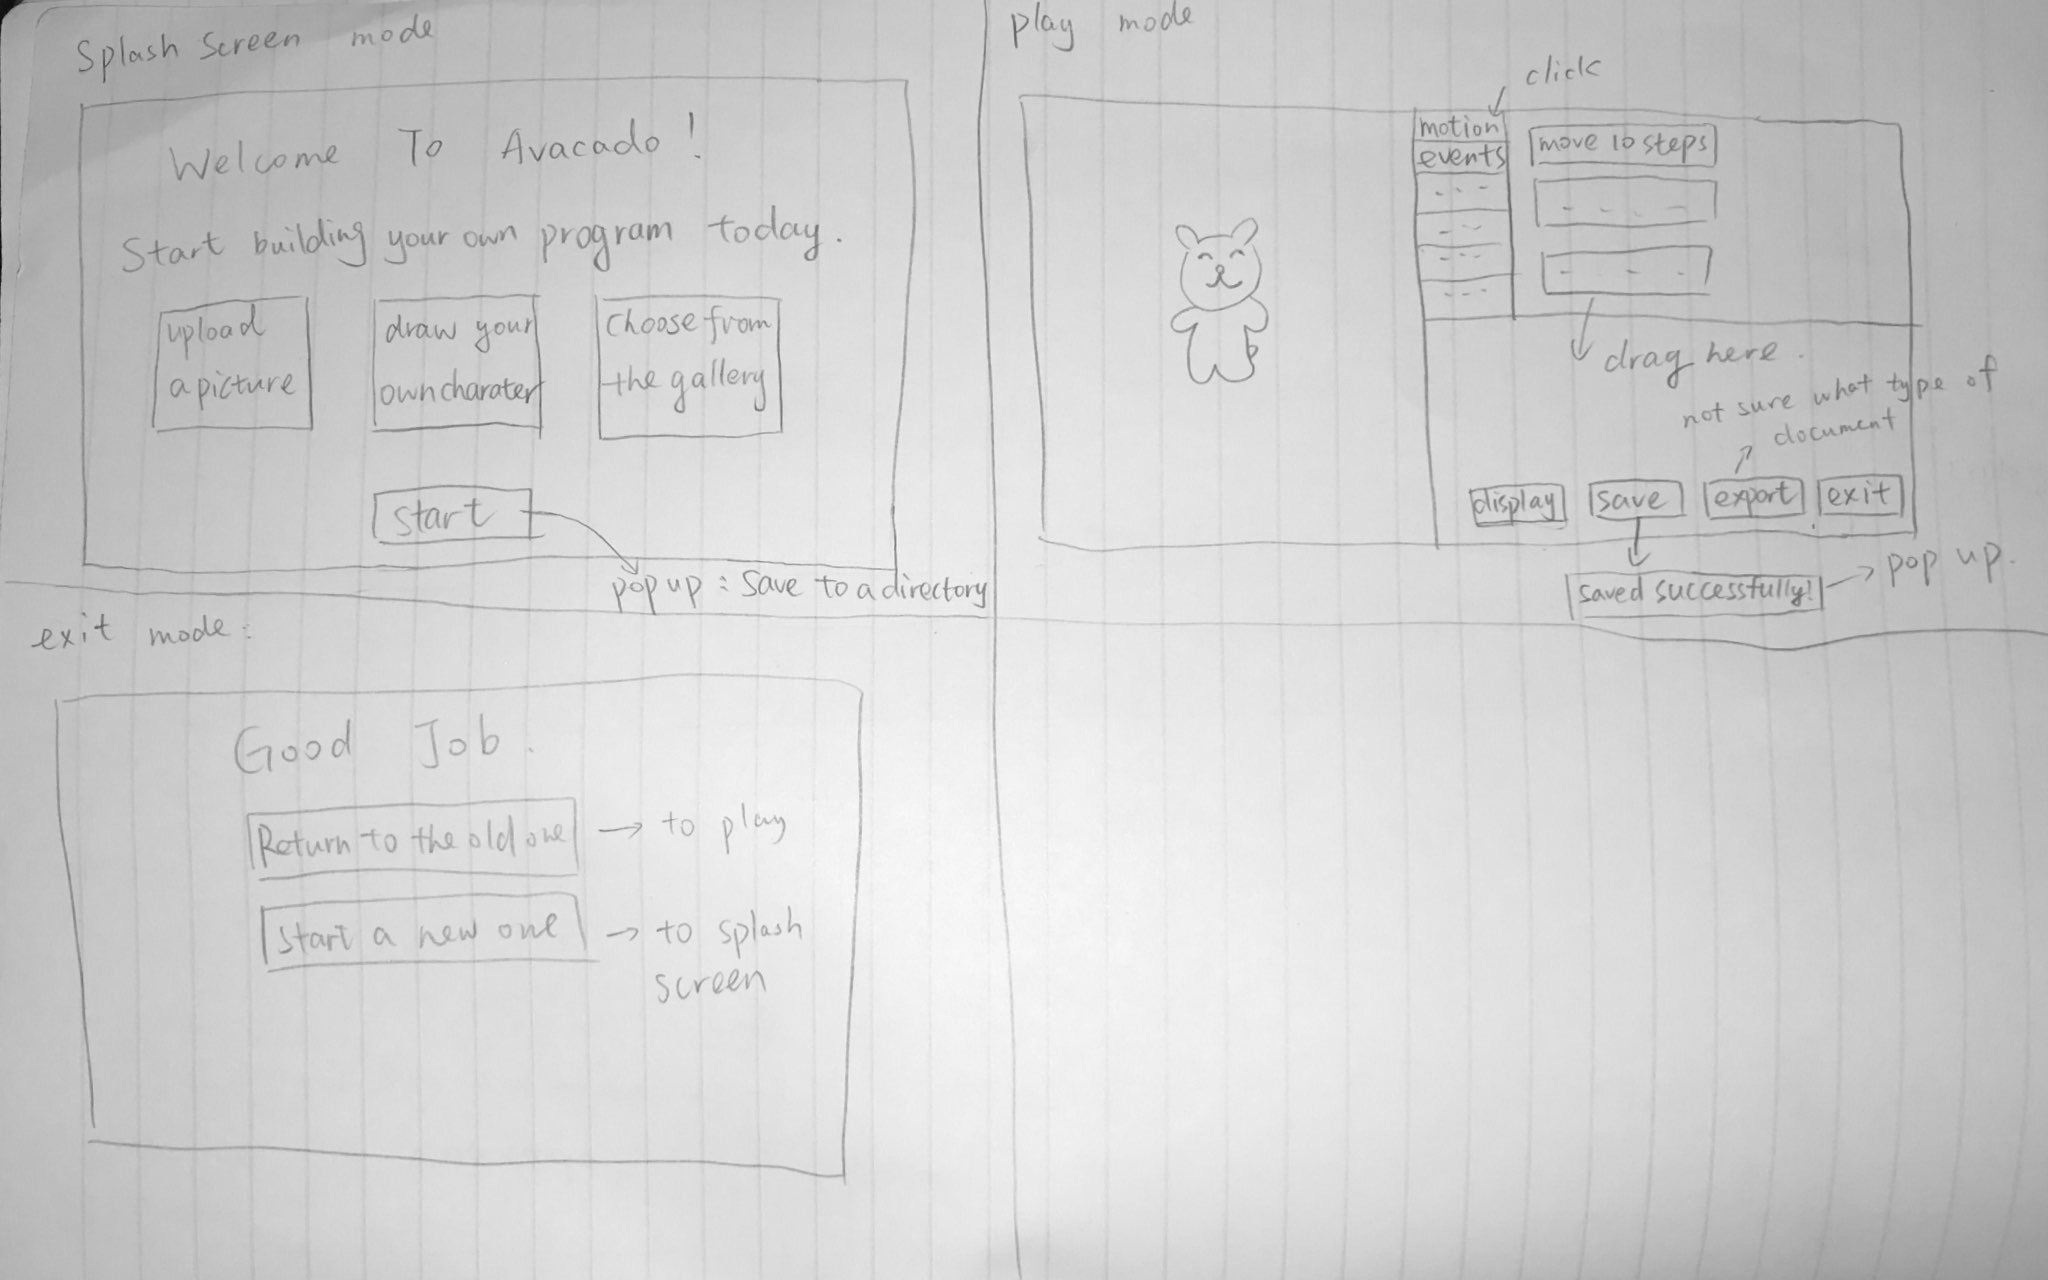 Splash Screen mode
Welcome To Avacado!
Start building your own program today.
upload
a picture
draw your
own charater
Choose from
the gallery
start
pop up : Save to a directory
play mode
click
motion
events
move 10 steps
drag here.
not sure what type of
document
display
save
export
exit
saved successfully!
pop up.
exit mode:
Good Job.
Return to the old one
to play
start a new one
to splash
screen